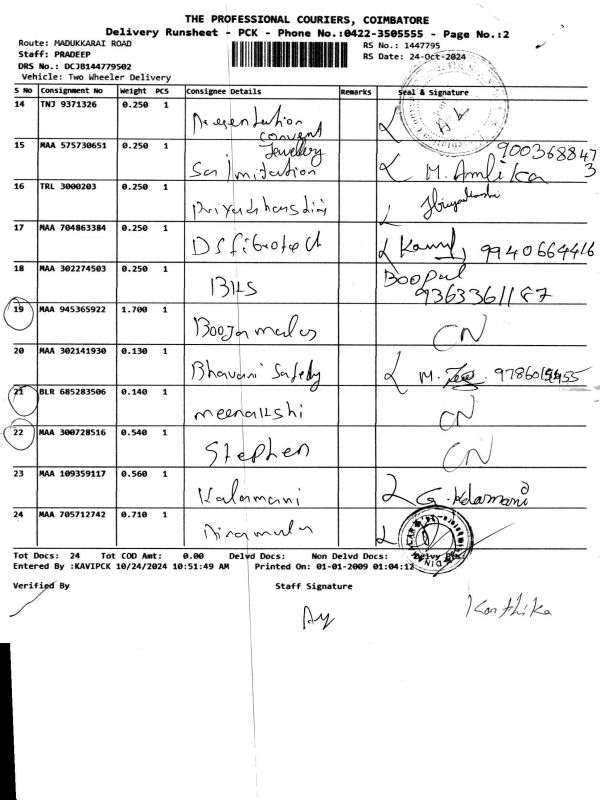 THE PROFESSIONAL COURIERS, COIMBATORE
Delivery Runsheet - PCK - Phone No.:0422-3505555 - Page No.:2
Route: MADUKKARAI ROAD RS No.: 1447795
Staff: PRADEEP RS Date: 24-Oct-2024
DRS No.: DCJB144779502
Vehicle: Two Wheeler Delivery
S No Consignment No Weight PCS Consignee Details Remarks Seal & Signature
14 TNJ 9371326 0.250 1 Presentation convent
15 MAA 575730651 0.250 1 Sai Imitation Jewellery M. Amlika 9003688473
16 TRL 3000203 0.250 1 Priyadharshini
17 MAA 704863384 0.250 1 DS fibrotech 9940664416
18 MAA 302274503 0.250 1 BHS Boopal 9363361187
19 MAA 945365922 1.700 1 CN
20 MAA 302141930 0.130 1 Bhavani Safety M.
21 BLR 685283506 0.140 1 meenakshi CN
22 MAA 300728516 0.540 1 Stephen CN
23 MAA 109359117 0.560 1 Kalamani G. Kalamani
24 MAA 705712742 0.710 1
Tot Docs: 24 Tot COD Amt: 0.00 Delvd Docs: Non Delvd Docs:
Entered By :KAVIPCK 10/24/2024 10:51:49 AM Printed On: 01-01-2009 01:04:12
Verified By Staff Signature
Karthika